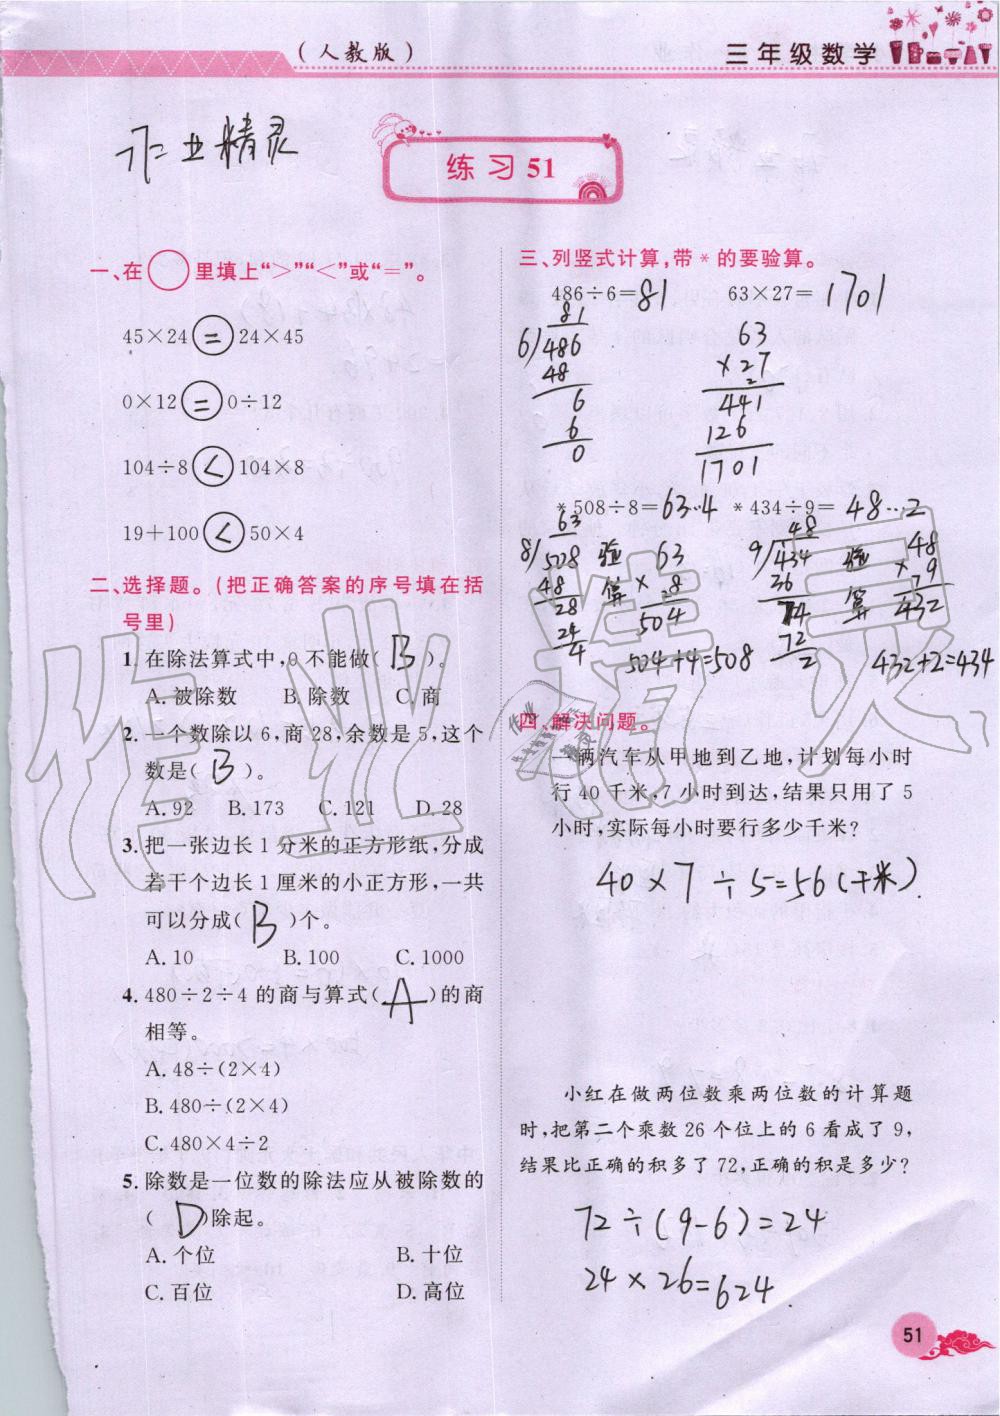 (人教版)
三年级数学
作业精灵
练习51
一、在○里填上“>”“<”或“=”。
45×24 = 24×45
0×12 = 0÷12
104÷8 < 104×8
19+100 < 50×4
二、选择题。(把正确答案的序号填在括
号里)
1. 在除法算式中,0不能做( B )。
A. 被除数 B. 除数 C. 商
2. 一个数除以6,商28,余数是5,这个
数是( B )。
A. 92 B. 173 C. 121 D. 28
3. 把一张边长1分米的正方形纸,分成
若干个边长1厘米的小正方形,一共
可以分成( B )个。
A. 10 B. 100 C. 1000
4. 480÷2÷4的商与算式( A )的商
相等。
A. 48÷(2×4)
B. 480÷(2×4)
C. 480×4÷2
5. 除数是一位数的除法应从被除数的
( D )除起。
A. 个位 B. 十位
C. 百位 D. 高位
三、列竖式计算,带*的要验算。
486÷6=81 63×27=1701
81
6)486
48
6
6
0
63
×27
2
441
126
1701
*508÷8=63…4 *434÷9=48…2
63
8)508
48
28
24
4
验算
63
×8
2
504
504+4=508
48
9)434
36
74
72
2
验算
48
×9
7
432
432+2=434
四、解决问题。
一辆汽车从甲地到乙地,计划每小时
行40千米,7小时到达,结果只用了5
小时,实际每小时要行多少千米?
40×7÷5=56(千米)
小红在做两位数乘两位数的计算题
时,把第二个乘数26个位上的6看成了9,
结果比正确的积多了72,正确的积是多少?
72÷(9-6)=24
24×26=624
51
作业精灵